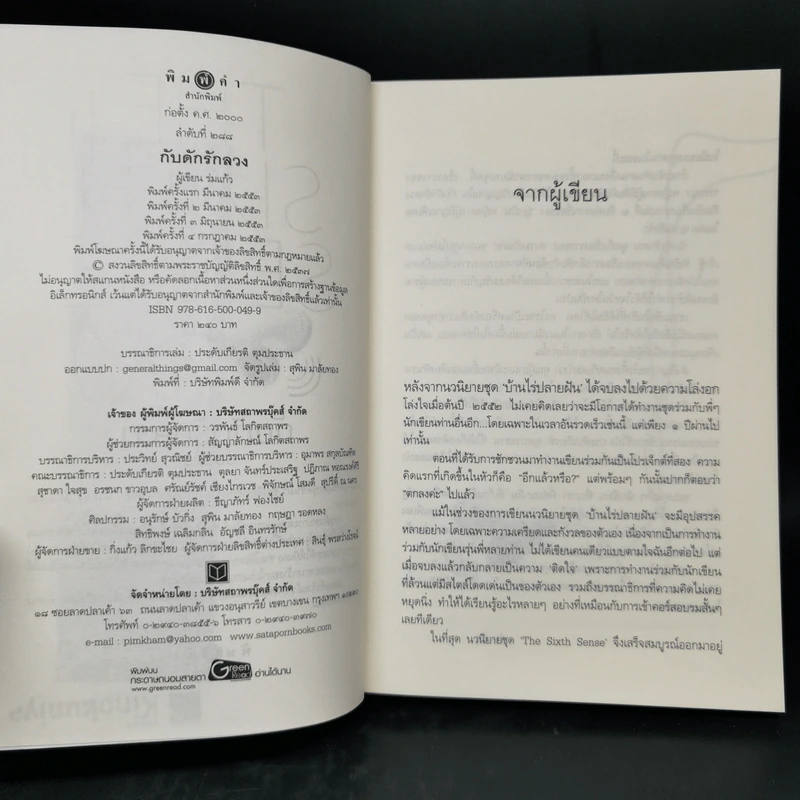 พิมพ์คำ
สำนักพิมพ์
ก่อตั้ง ค.ศ. ๒๐๐๐
ลำดับที่ ๒๘๘
กับดักรักลวง
ผู้เขียน ร่มแก้ว
พิมพ์ครั้งแรก มีนาคม ๒๕๕๓
พิมพ์ครั้งที่ ๒ มีนาคม ๒๕๕๓
พิมพ์ครั้งที่ ๓ มิถุนายน ๒๕๕๓
พิมพ์ครั้งที่ ๔ กรกฎาคม ๒๕๕๓
พิมพ์โฆษณาครั้งนี้ได้รับอนุญาตจากเจ้าของลิขสิทธิ์ตามกฎหมายแล้ว
© สงวนลิขสิทธิ์ตามพระราชบัญญัติลิขสิทธิ์ พ.ศ. ๒๕๓๗
ไม่อนุญาตให้สแกนหนังสือ หรือคัดลอกเนื้อหาส่วนหนึ่งส่วนใดเพื่อการสร้างฐานข้อมูล
อิเล็กทรอนิกส์ เว้นแต่ได้รับอนุญาตจากสำนักพิมพ์และเจ้าของลิขสิทธิ์แล้วเท่านั้น
ISBN 978-616-500-049-9
ราคา ๒๔๐ บาท
บรรณาธิการเล่ม : ประดับเกียรติ ตุมประธาน
ออกแบบปก : generalthings@gmail.com จัดรูปเล่ม : สุพิน มาลัยทอง
พิมพ์ที่ : บริษัทพิมพ์ดี จำกัด
เจ้าของ ผู้พิมพ์ผู้โฆษณา : บริษัทสถาพรบุ๊คส์ จำกัด
กรรมการผู้จัดการ : วรพันธ์ โลกิตสถาพร
ผู้ช่วยกรรมการผู้จัดการ : สัญญาลักษณ์ โลกิตสถาพร
บรรณาธิการบริหาร : ประวิทย์ สุวณิชย์ ผู้ช่วยบรรณาธิการบริหาร : อุมาพร สกุลบัณฑิต
คณะบรรณาธิการ : ประดับเกียรติ ตุมประธาน ตุลยา จันทร์ประเสริฐ ปฏิภาณ หอณรงค์ศิริ
สุชาดา ใจสุข อรชนก ขาวอุบล ศรัณย์รัชต์ เชียงไกรเวช พิจักษณ์ โสมดี สุปรีดิ์ ณ นคร
ผู้จัดการฝ่ายผลิต : ธีญาภัทร์ ฟองไชย์
ศิลปกรรม : อนุรักษ์ บัวกิ่ง สุพิน มาลัยทอง กฤษฎา รอดหลง
สิทธิพงษ์ เฉลิมกลิ่น อัญชลี อินทรรักษ์
ผู้จัดการฝ่ายขาย : กิ่งแก้ว ลิกขะไชย ผู้จัดการฝ่ายลิขสิทธิ์ต่างประเทศ : สินธุ์ พรสว่างโรจน์
จัดจำหน่ายโดย : บริษัทสถาพรบุ๊คส์ จำกัด
๑๘ ซอยลาดปลาเค้า ๖๓ ถนนลาดปลาเค้า แขวงอนุสาวรีย์ เขตบางเขน กรุงเทพฯ ๑๐๒๒๐
โทรศัพท์ ๐-๒๙๔๐-๓๘๕๕-๖ โทรสาร ๐-๒๙๔๐-๓๙๗๐
e-mail : pimkham@yahoo.com www.satapornbooks.com
พิมพ์บน
กระดาษถนอมสายตา Green Read อ่านได้นาน
www.greenread.com
จากผู้เขียน
หลังจากนวนิยายชุด 'บ้านไร่ปลายฝัน' ได้จบลงไปด้วยความโล่งอก
โล่งใจเมื่อต้นปี ๒๕๕๒ ไม่เคยคิดเลยว่าจะมีโอกาสได้ทำงานชุดร่วมกับพี่ๆ
นักเขียนท่านอื่นอีก...โดยเฉพาะในเวลาอันรวดเร็วเช่นนี้ แต่เพียง ๑ ปีผ่านไป
เท่านั้น
ตอนที่ได้รับการชักชวนมาทำงานเขียนร่วมกันเป็นโปรเจ็กต์ที่สอง ความ
คิดแรกที่เกิดขึ้นในหัวก็คือ "อีกแล้วหรือ?" แต่พร้อมๆ กันนั้นปากก็ตอบว่า
"ตกลงค่ะ" ไปแล้ว
แม้ในช่วงของการเขียนนวนิยายชุด 'บ้านไร่ปลายฝัน' จะมีอุปสรรค
หลายอย่าง โดยเฉพาะความเครียดและกังวลของตัวเอง เนื่องจากเป็นการทำงาน
ร่วมกับนักเขียนรุ่นพี่หลายท่าน ไม่ได้เขียนคนเดียวแบบตามใจฉันอีกต่อไป แต่
เมื่อจบลงแล้วกลับกลายเป็นความ 'ติดใจ' เพราะการทำงานร่วมกับนักเขียน
ที่ล้วนแต่มีสไตล์โดดเด่นของตัวเอง รวมถึงบรรณาธิการที่ความคิดไม่เคย
หยุดนิ่ง ทำให้ได้เรียนรู้อะไรหลายๆ อย่างที่เหมือนกับการเข้าคอร์สอบรมสั้นๆ
เลยทีเดียว
ในที่สุด นวนิยายชุด 'The Sixth Sense' จึงเสร็จสมบูรณ์ออกมาอยู่